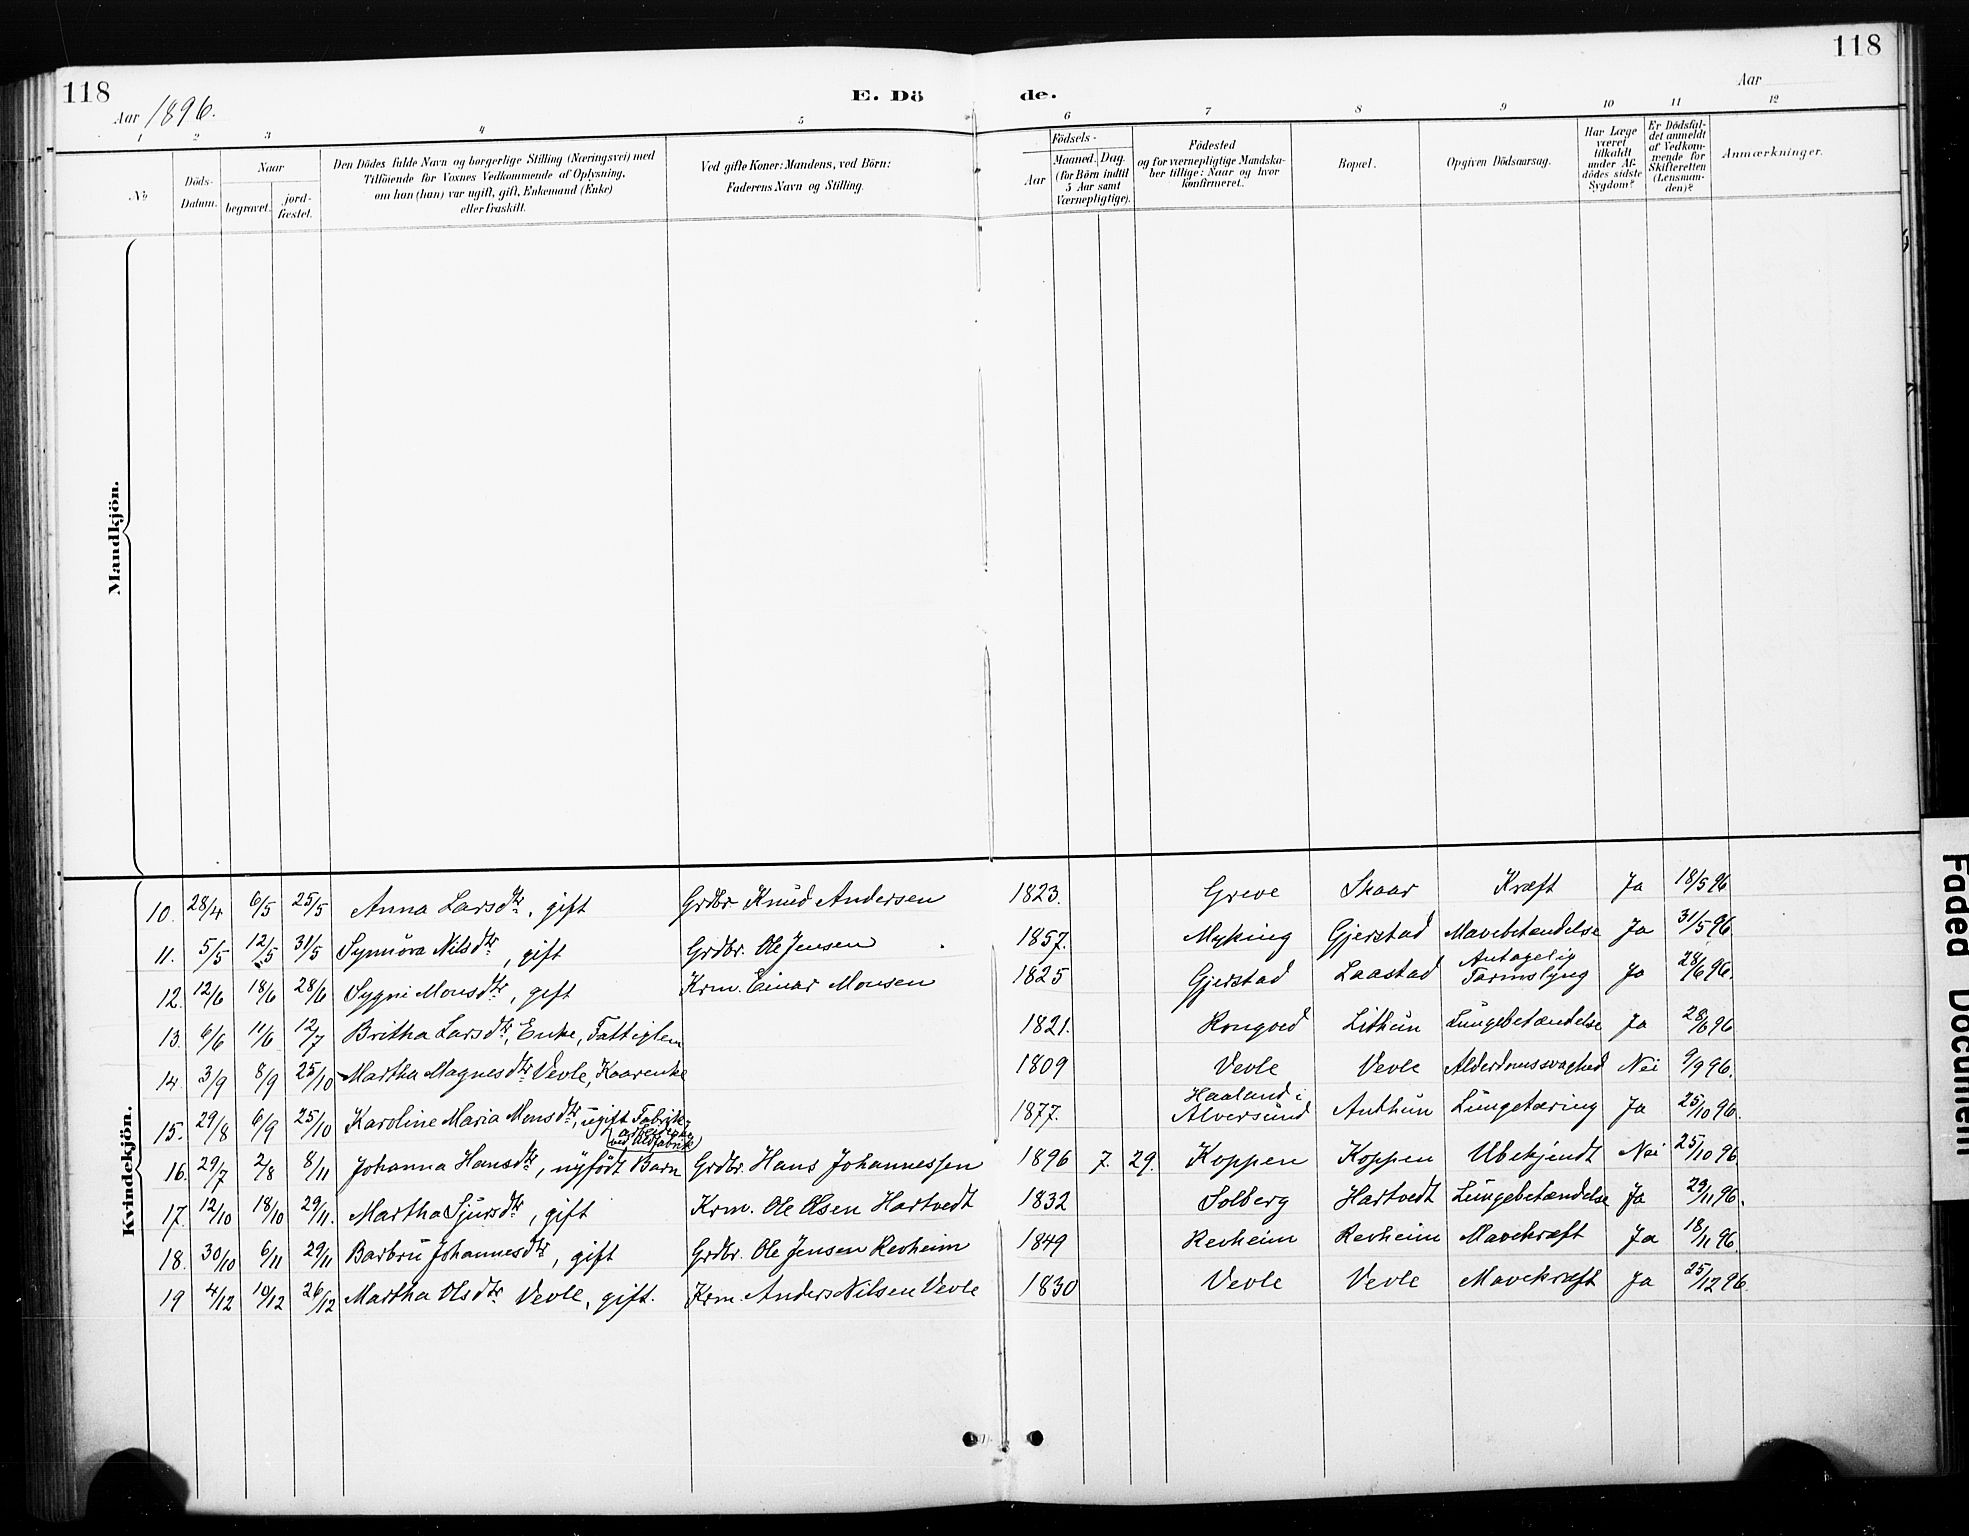 118
118
Aar 1896.
E. Dö
de.
Aar
1 2 3 4 5 6 7 8 9 10 11 12
No
Döds-Datum.
Naar
begravet.
jord-fæstet.
Den Dödes fulde Navn og borgerlige Stilling (Næringsvei) med
Tilföiende for Voxnes Vedkommende af Oplysning,
om han (hun) var ugift, gift, Enkemand (Enke)
eller fraskilt.
Ved gifte Koner: Mandens, ved Börn:
Faderens Navn og Stilling.
Födsels-
Aar
Maaned. Dag.
(for Börn indtil
5 Aar samt
Værnepligtige).
Födested
og for værnepligtige Mandska-
ber tillige: Naar og hvor
konfirmeret.
Bopæl.
Opgiven Dödsaarsag.
Har Læge
været
tilkaldt
under Af-
dödes sidste
Sygdom?
Er Dödsfal-
det anmeldt
af Vedkom-
mende for
Skifteretten
(Lensman-
den)?
Anmærkninger.
Mandkjön.
Kvindekjön.
10. 28/4 6/5 25/5 Anna Larsdtr., gift Grdbr Knud Andersen 1823. Greve Skaar Kræft Ja 18/5 96
11. 5/5 12/5 31/5 Synnöva Nilsdtr, gift Grdbr. Ole Jensen 1857. Myking Gjerstad Mavebetændelse Ja 31/5 96.
12. 12/6 18/6 28/6 Sygni Monsdtr, gift Krm. Einar Monsen 1825 Gjerstad Laastad Antagelig Tarmslyng Ja 28/6 96.
13. 6/6 11/6 12/7 Britha Larsdtr, Enke, Fattiglem 1821. Rongved Lithun Lungebetændelse Ja 28/6 96
14. 3/9 8/9 25/10 Martha Magnesdtr Vevle, Kaarenke 1809 Vevle Vevle Alderdomssvaghed Nei 9/9 96.
15. 29/8 6/9 25/10 Karoline Maria Monsdtr, ugift Fabrik-
ved Uldfabrik 1877. Haaland i Alversund Anthun Lungetæring Ja 25/10 96.
16. 29/7 2/8 8/11 Johanna Hansdtr, nyfödt Barn Grdbr. Hans Johannessen 1896 7. 29. Koppen Koppen Ubekjendt Nei 25/10 96.
17. 12/10 18/10 29/11. Martha Sjursdtr, gift Krm. Ole Olsen Hartvedt 1832 Solberg Hartvedt Lungebetændelse Ja 29/11 96.
18. 30/10 6/11 29/11 Barbru Johannesdtr, gift Grdbr. Ole Jensen Revheim 1849 Revheim Revheim Mavekræft Ja 18/11 96.
19 4/12 10/12 26/12 Martha Olsdtr Vevle, gift. Krm. Anders Nilsen Vevle 1830 Vevle Vevle Mavekræft Ja 25/12 96.
Faded Document